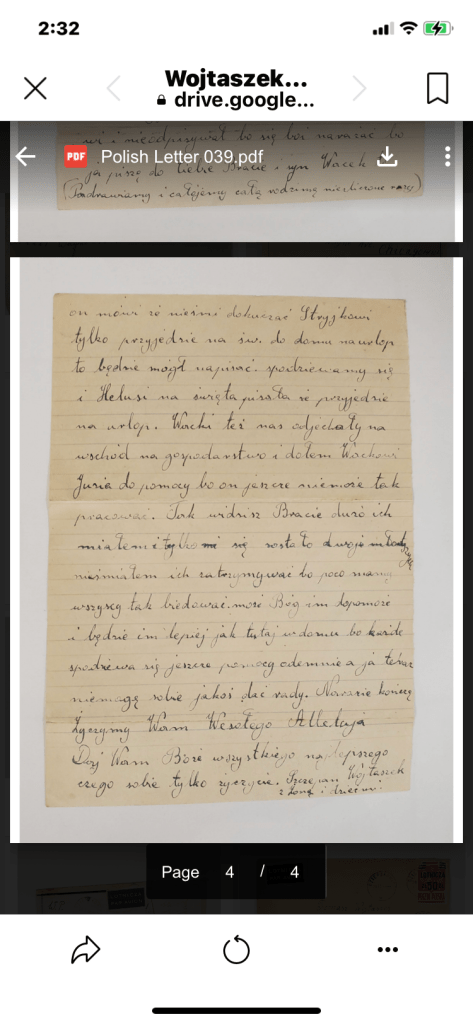 2:32
Wojtaszek...
drive.google...
PDF Polish Letter 039.pdf
się boi narażać bo
ja piszę do Ciebie Bracie i syn Wacek
(Pozdrawiamy i całujemy całą rodzinę niezliczone razy)
on mówi że nieśmi dokuczać Stryjkowi
tylko przyjedzie na św. do domu na urlop
to będzie mógł napisać. spodziewamy się
i Helusi na święta pisała że przyjedzie
na urlop. Wacki też nas odjechały na
wschód na gospodarstwo i dałem Wackowi
Juria do pomocy bo on jeszcze niemoże tak
pracować. Tak widzisz Bracie dużo ich
miałem i tylko mi się zostało dwoje młodszych
nieśmiałem ich zatrzymywać bo poco mamy
wszyscy tak biedować może Bóg im dopomoże
i będzie im lepiej jak tutaj w domu bo każde
spodziewa się jeszcze pomocy odemnie a ja teraz
niemagę sobie jakoś dać rady. Narazie kończę
Życzymy Wam Wesołego Alleluja
Daj Wam Boże wszystkiego najlepszego
czego sobie tylko życzycie. Szczepan Wójtaszek
z żoną i dziećmi.
Page 4 / 4